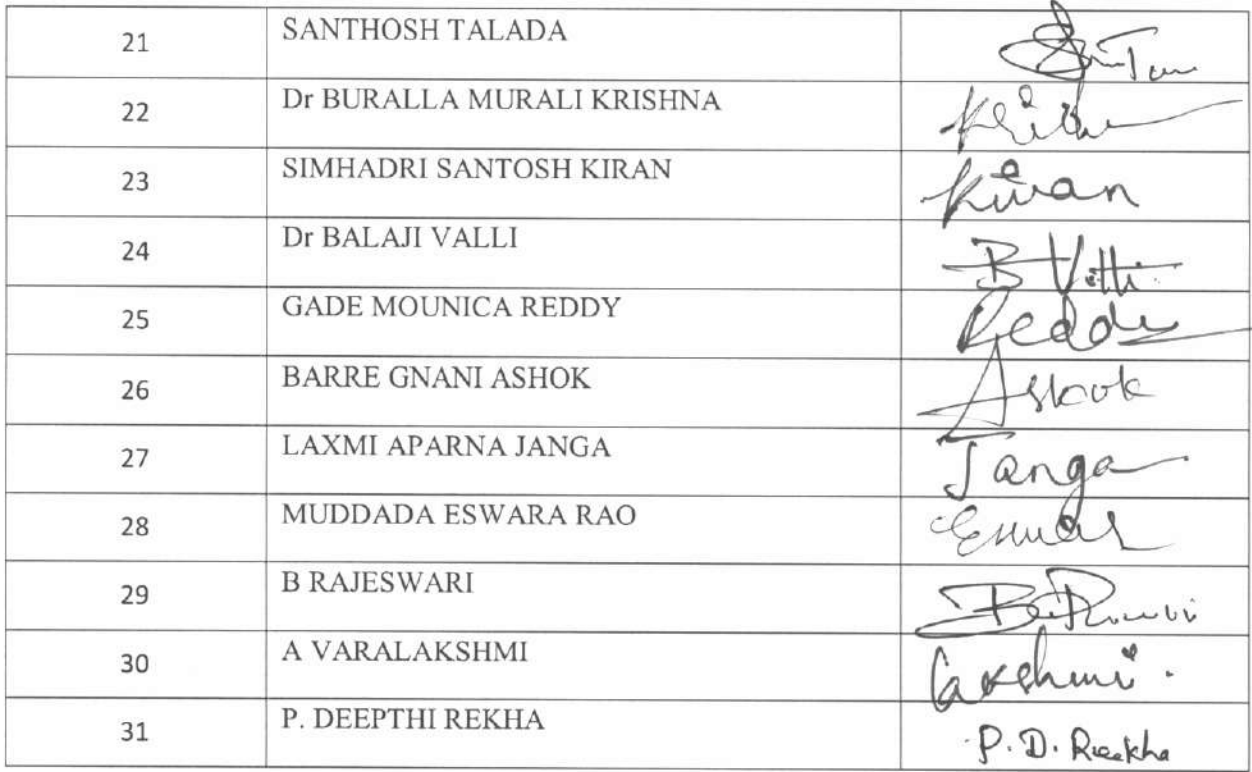 21 SANTHOSH TALADA
22 Dr BURALLA MURALI KRISHNA
23 SIMHADRI SANTOSH KIRAN Kiran
24 Dr BALAJI VALLI
25 GADE MOUNICA REDDY Reddy
26 BARRE GNANI ASHOK Ashok
27 LAXMI APARNA JANGA Janga
28 MUDDADA ESWARA RAO
29 B RAJESWARI
30 A VARALAKSHMI Lakshmi
31 P. DEEPTHI REKHA P. D. Reekha